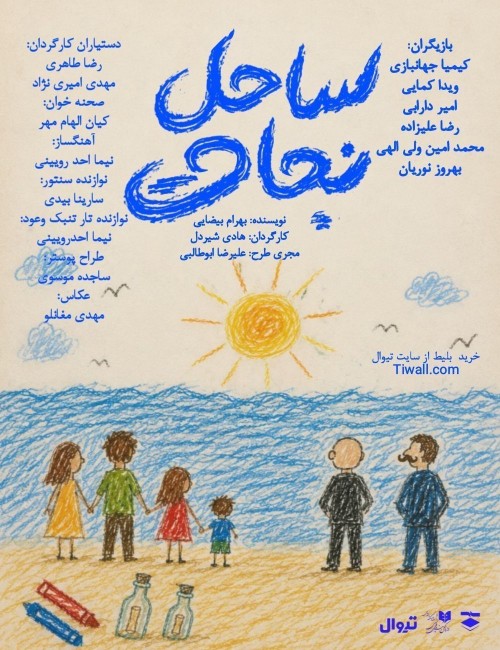 ساحل
نجات
نویسنده: بهرام بیضایی
کارگردان: هادی شیردل
مجری طرح: علیرضا ابوطالبی
بازیگران:
کیمیا جهانبازی
ویدا کمایی
امیر دارابی
رضا علیزاده
محمد امین ولی الهی
بهروز نوریان
دستیاران کارگردان:
رضا طاهری
مهدی امیری نژاد
صحنه خوان:
کیان الهام مهر
آهنگساز:
نیما احد رویینی
نوازنده سنتور:
سارینا بیدی
نوازنده تار تنبک وعود:
نیما احدرویینی
طراح پوستر:
ساجده موسوی
عکاس:
مهدی مغانلو
خرید بلیط از سایت تیوال
Tiwall.com
تیوال